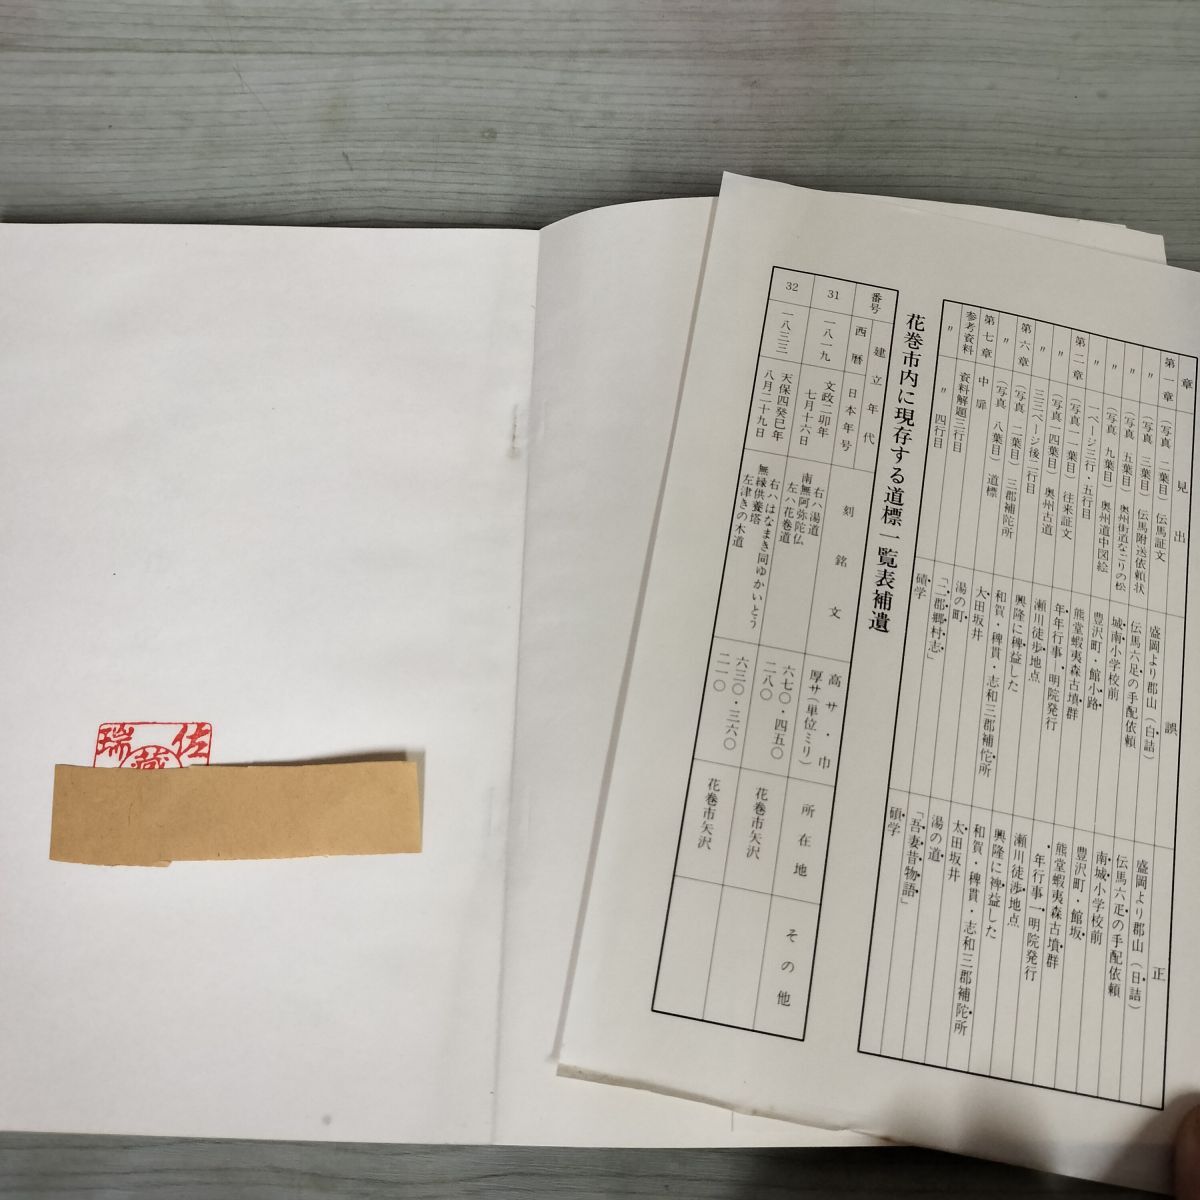 章
見出
誤
正
第一章
（写真 二葉目）伝馬証文
盛岡より郡山（白詰）
盛岡より郡山（日詰）
〃
（写真 三葉目）伝馬附送依頼状
伝馬六足の手配依頼
伝馬六疋の手配依頼
〃
（写真 五葉目）奥州街道なごりの松
城南小学校前
南城小学校前
〃
（写真 九葉目）奥州道中図絵
豊沢町・館小路
豊沢町・館坂
〃
熊堂蝦夷森古墳群
熊堂蝦夷森古墳群
第二章
（写真一一葉目）往来証文
年年行事、明院発行
年行事一明院発行
〃
（写真一四葉目）奥州古道
瀬川徒歩地点
瀬川徒渉地点
〃
三三ページ後二行目
興隆に稗益した
興隆に裨益した
第六章
（写真 二葉目）三郡補陀所
和賀・稗貫・志和三郡補佗所
和賀・稗貫・志和三郡補陀所
〃
（写真 八葉目）道標
大田坂井
太田坂井
第七章
中扉
湯の町
湯の道
参考資料
資料解題三行目
「二郡郷村志」
「吾妻昔物語」
〃
〃 四行目
碩学
碩学
花巻市内に現存する道標一覧表補遺
番号
建立年代
西暦
日本年号
刻銘文
高サ・巾
厚サ（単位ミリ）
所在地
その他
31
一八一九
文政二卯年
七月十六日
右ハ湯道
南無阿弥陀仏
左ハ花巻道
六七〇・四五〇
二八〇
花巻市矢沢
32
一八三三
天保四癸巳年
八月二十九日
右ハはなまき同ゆかいとう
無縁供養塔
左津きの木道
六三〇・三六〇
二一〇
花巻市矢沢
佐
瑞
蔵